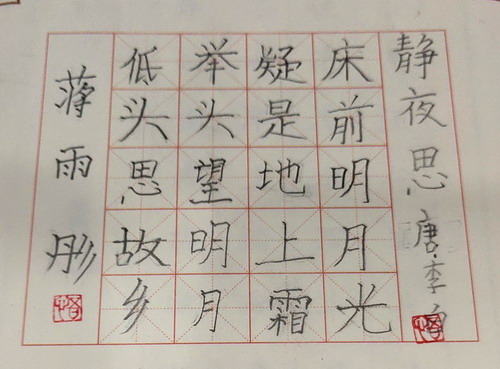 静夜思 唐·李白
床前明月光
疑是地上霜
举头望明月
低头思故乡
蒋雨彤